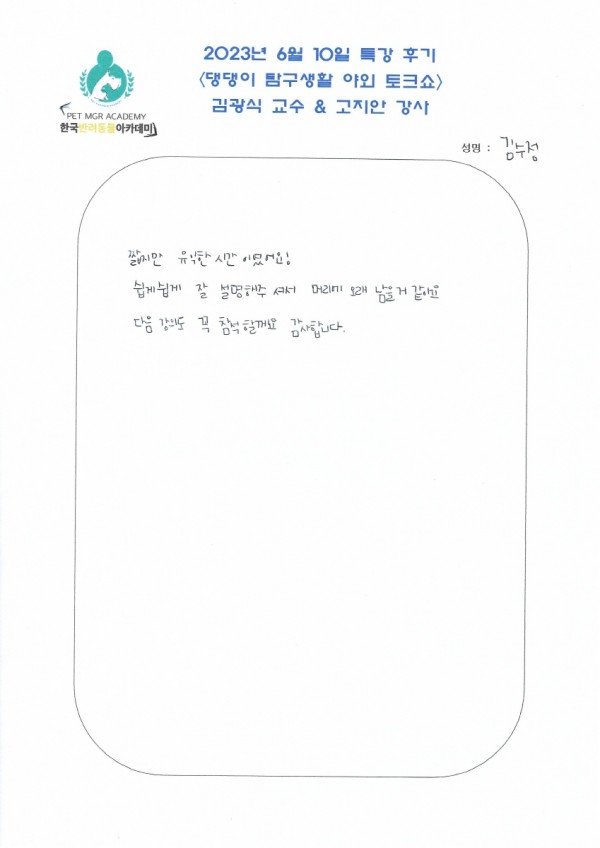 2023년 6월 10일 특강 후기
<댕댕이 탐구생활 야외 토크쇼>
김광식 교수 & 고지안 강사
PET MGR ACADEMY
한국반려동물아카데미
성명 : 김수정
짧지만 유익한 시간 이였어요!
쉽게쉽게 잘 설명해주셔서 머리에 오래 남을거 같아요
다음 강의도 꼭 참석할께요 감사합니다.